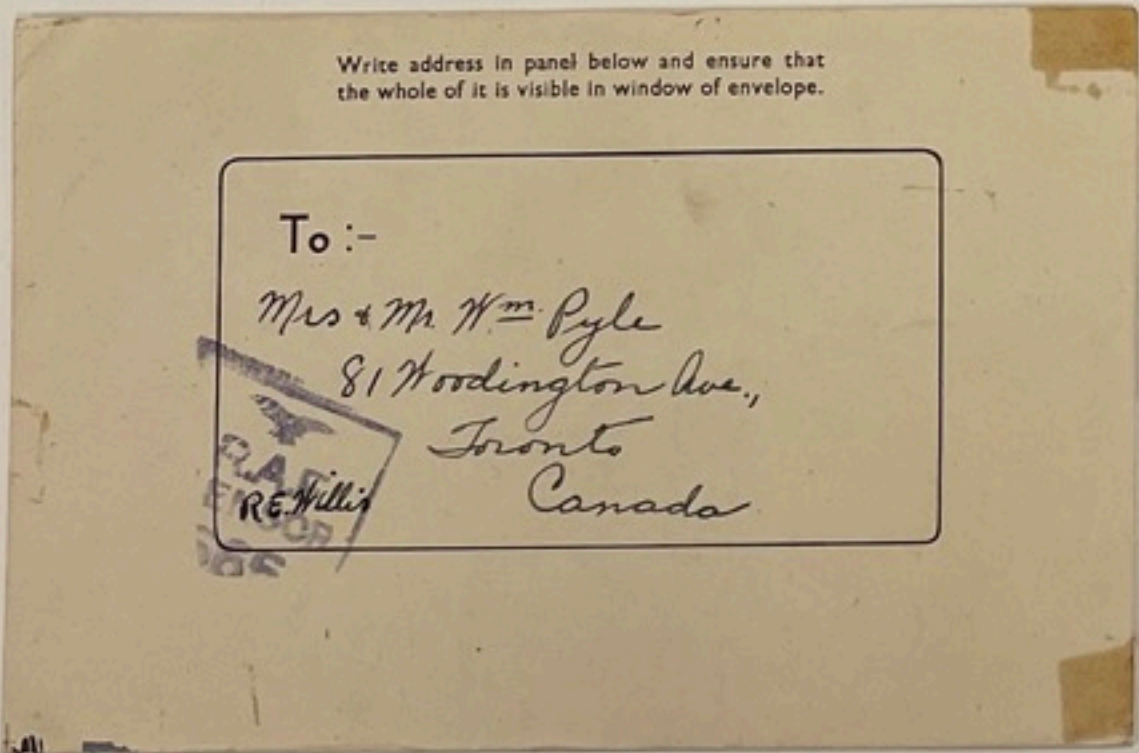 Write address in panel below and ensure that
the whole of it is visible in window of envelope.
To :-
Mrs & Mr. Wm. Pyle
81 Woodington Ave.,
Toronto
Canada
R.A.F.
CENSOR
R.E. Willis